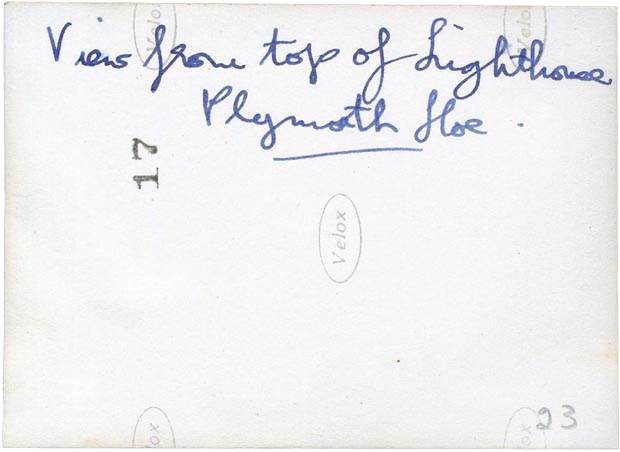 View from top of Lighthouse
Plymouth Hoe.
17
Velox
Velox
Velox
23